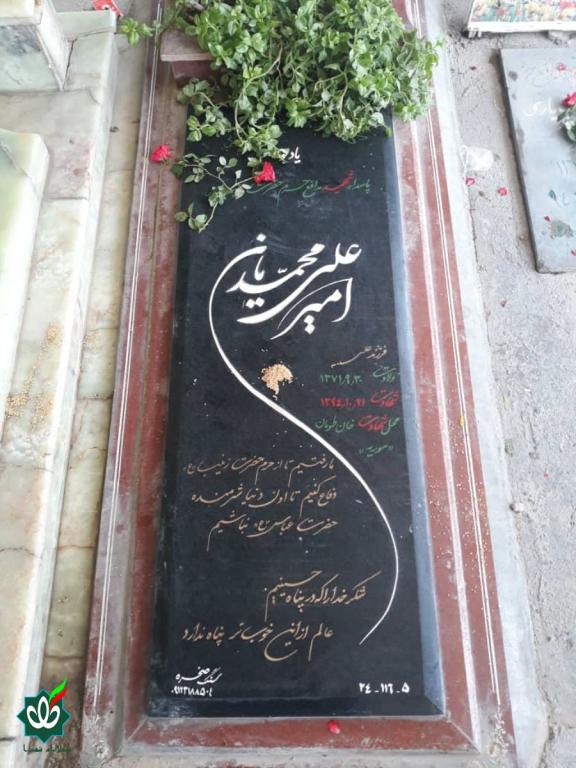 یاد
پاسدار شهید مدافع حرم
امیر علی محمدیان
فرزند علی
ولادت ۱۳۷۱/۹/۳۰
شهادت ۱۳۹۴/۱۰/۲۱
محل شهادت خان طومان
"سوریه"
ما رفتیم تا از حرم حضرت زینب (س)
دفاع کنیم تا اون دنیا شرمنده
حضرت عباس (ع) نباشیم
شکر خدا را که در پناه حسینیم
عالم از این خوب تر پناه ندارد
سنگ صخره
۲۴-۱۱۶-۵